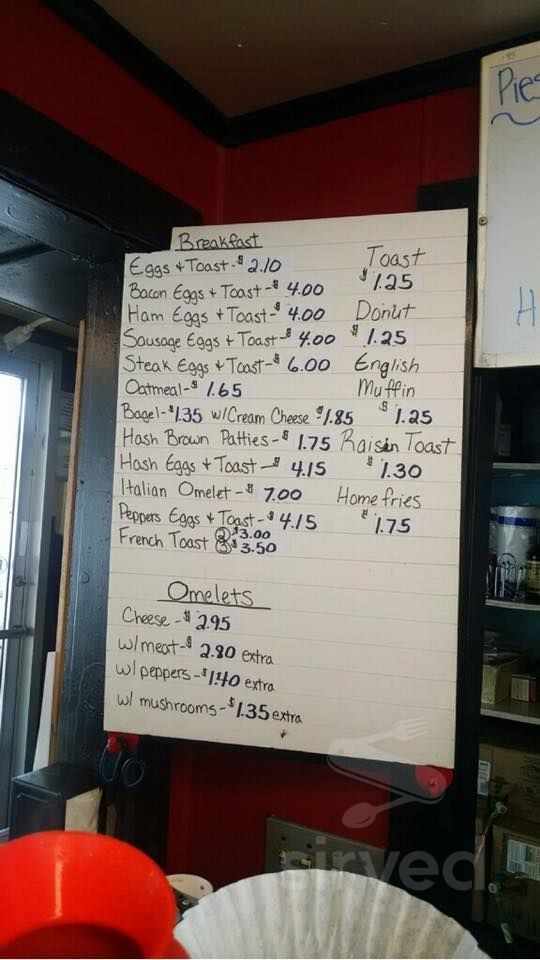 Breakfast
Eggs + Toast - $ 2.10
Bacon Eggs + Toast - $ 4.00
Ham Eggs + Toast - $ 4.00
Sausage Eggs + Toast - $ 4.00
Steak Eggs + Toast - $ 6.00
Oatmeal - $ 1.65
Bagel - $1.35 w/Cream Cheese $1.85
Hash Brown Patties - $ 1.75
Hash Eggs + Toast - $ 4.15
Italian Omelet - $ 7.00
Peppers Eggs + Toast - $ 4.15
French Toast ② $3.00
③ $3.50
Toast
$ 1.25
Donut
$ 1.25
English
Muffin
$ 1.25
Raisin Toast
$ 1.30
Homefries
$ 1.75
Omelets
Cheese - $ 2.95
w/meat - $ 2.80 extra
w/ peppers - $1.40 extra
w/ mushrooms - $1.35 extra
Pies
H
sirved